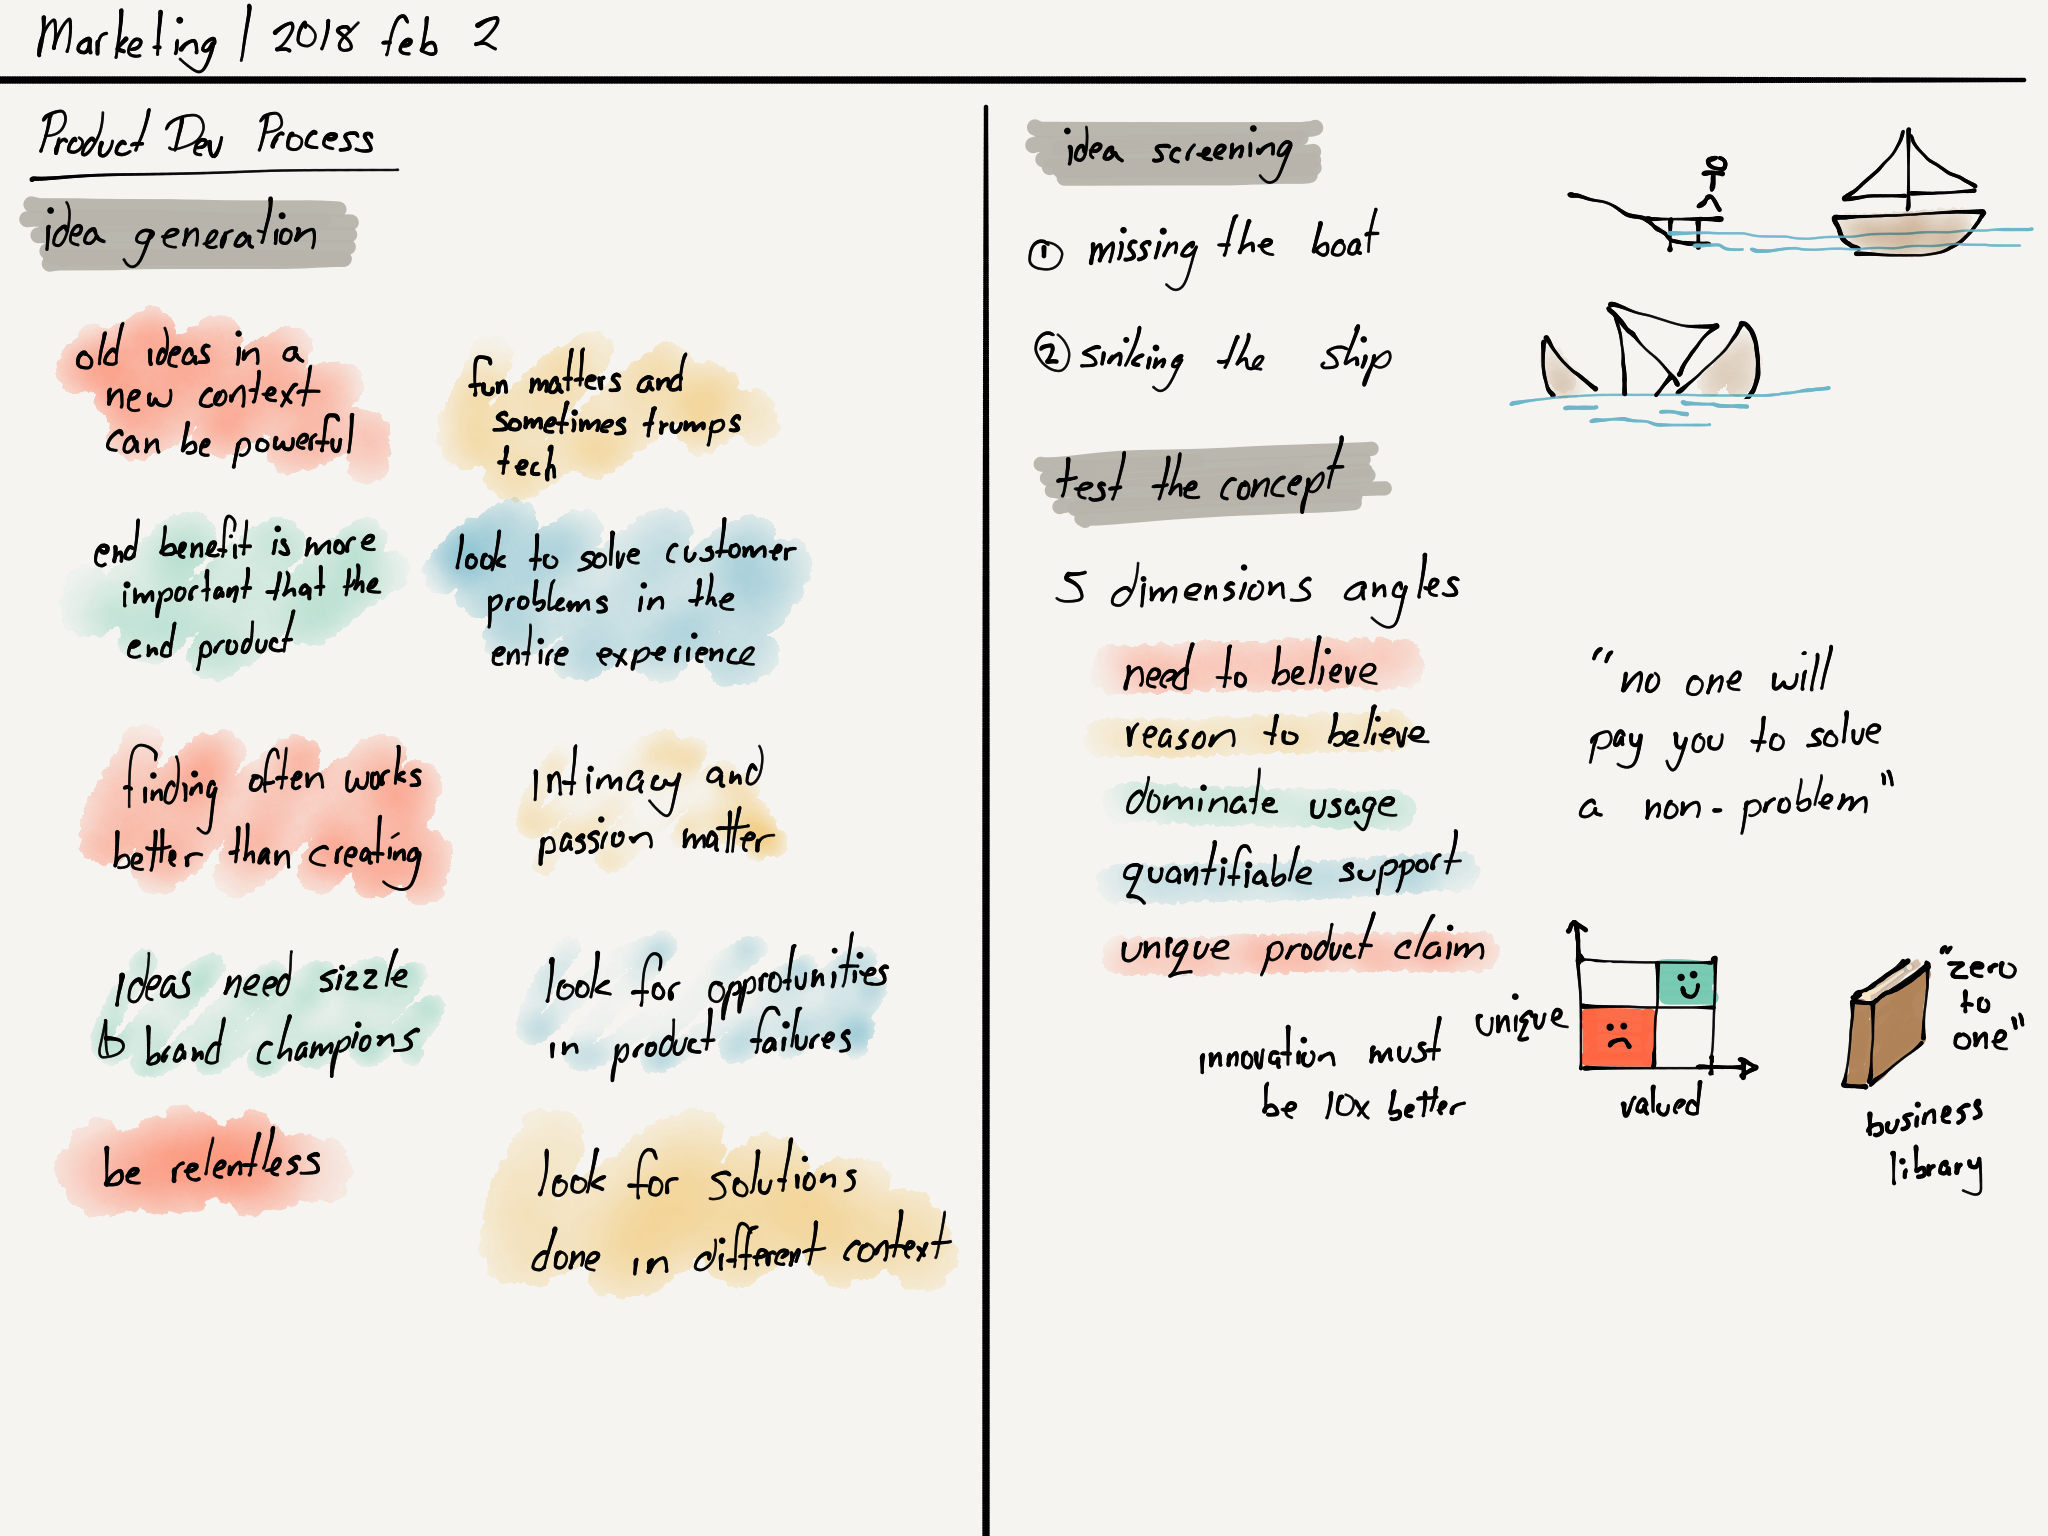 Marketing | 2018 feb 2
Product Dev Process
idea generation
old ideas in a
new context
can be powerful
fun matters and
sometimes trumps
tech
end benefit is more
important that the
end product
look to solve customer
problems in the
entire experience
finding often works
better than creating
Intimacy and
passion matter
Ideas need sizzle
brand champions
look for opprotunities
in product failures
be relentless
look for solutions
done in different context
idea screening
① missing the boat
② sinking the ship
test the concept
5 dimensions angles
need to believe
reason to believe
dominate usage
quantifiable support
unique product claim
"no one will
pay you to solve
a non-problem"
innovation must
be 10x better
unique
valued
"zero
to
one"
business
library